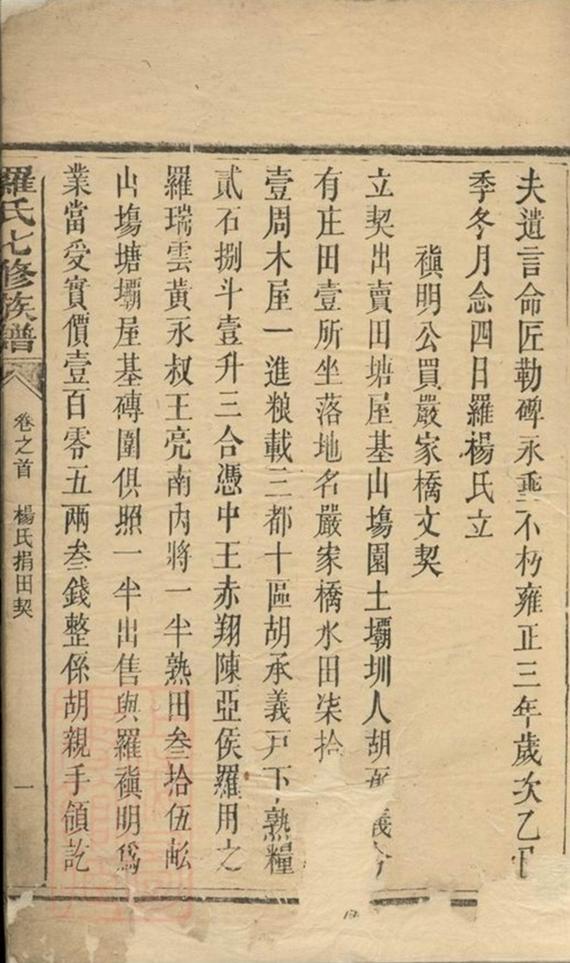 夫遺言命匠勒碑永垂不朽雍正三年歲次乙
季冬月念四日羅楊氏立
禛明公買嚴家橋文契
立契出賣田塘屋基山塲園土壩圳人胡義今
有庄田壹所坐落地名嚴家橋水田柒拾
壹周木屋一進粮載三都十區胡承義戸下熟糧
貳石捌斗壹升三合憑中王赤翔陳亞侯羅用之
羅瑞雲黃永叔王亮南内將一半熟田叁拾伍畝
山塲塘壩屋基磚圍俱照一半出售與羅禛明爲
業當受實價壹百零五兩叁錢整係胡親手領訖
羅氏七修族譜 卷之首 楊氏捐田契 一